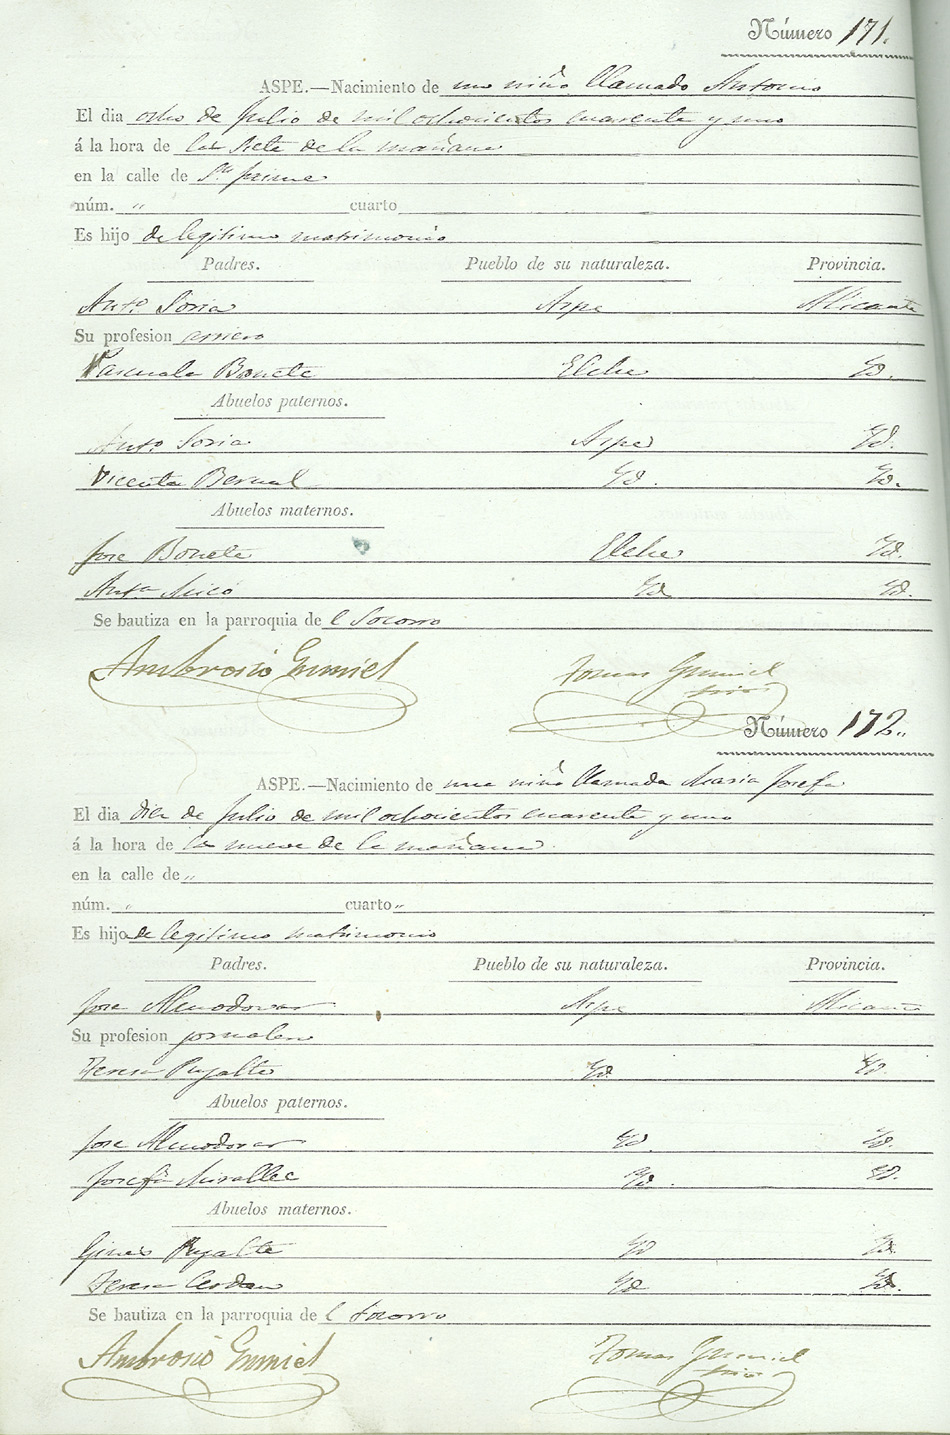 Número 171.
ASPE.—Nacimiento de un niño llamado Antonio
El dia ocho de Julio de mil ochocientos cuarenta y uno
á la hora de las siete de la mañana
en la calle de
núm. " cuarto
Es hijo de legitimo matrimonio
Padres. Pueblo de su naturaleza. Provincia.
Anto. Soria Aspe Alicante
Su profesion arriero
Pascuala Bonete Elche Yd.
Abuelos paternos.
Anto. Soria Aspe Yd.
Vicenta Bernal Yd. Yd.
Abuelos maternos.
Jose Bonete Elche Yd.
Anta. Mico Yd Yd.
Se bautiza en la parroquia de l Socorro
Ambrosio Gumiel Tomas Gumiel
Número 172.
ASPE.—Nacimiento de una niña llamada Maria Josefa
El dia diez de Julio de mil ochocientos cuarenta y uno
á la hora de las nueve de la mañana
en la calle de "
núm. " cuarto "
Es hijo de legitimo matrimonio
Padres. Pueblo de su naturaleza. Provincia.
Jose Almodovar Aspe Alicante
Su profesion jornalero
Teresa Pujalte Yd. Yd.
Abuelos paternos.
Jose Almodovar Yd. Yd.
Josefa Miralles Yd. Yd.
Abuelos maternos.
Gines Pujalte Yd Yd.
Teresa Cerdan Yd Yd.
Se bautiza en la parroquia de l Socorro
Ambrosio Gumiel Tomas Gumiel